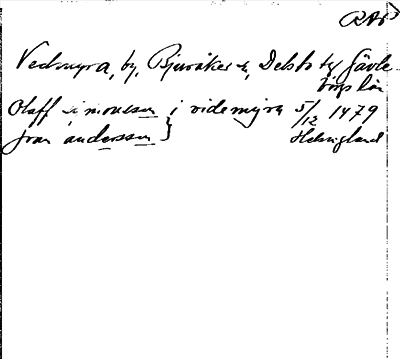 RAP
Vedmyra, by, Bjuråker sn, Delsbo tg Gävle-
borgs län
Olaff simonsson i videmyra 5/12 1479
jron andersson } Helsingland